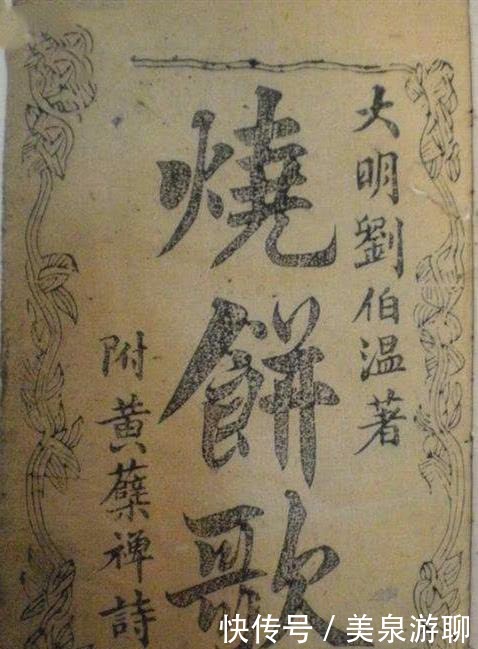 大明劉伯温著
燒餅歌
附黃蘗禅詩
快传号 / 美泉游聊